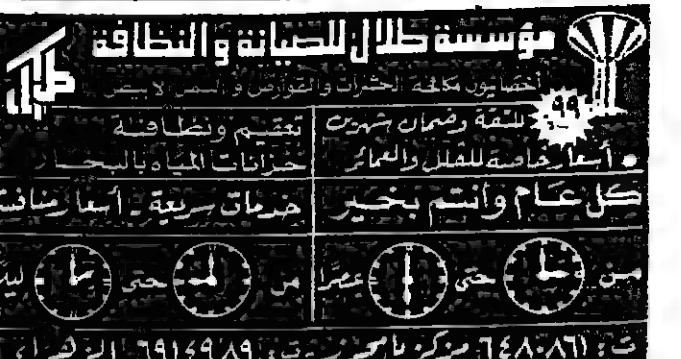 مؤسسة طلال للصيانة والنظافة
طلال
أخصائيون مكافحة الحشرات والقوارض والنمل الأبيض
٩٩ للثقة وضمان شهرين
• أسعار خاصة للفلل والعمائر
تعقيم ونظافة
خزانات المياه بالبخار
كل عام وانتم بخير
خدمات سريعة - أسعار
من حتى عصرًا
من حتى
ت : ٦٤٨٠٨٦١ مركز
ت : ٦٩١٤٩٨٩ الزهراء